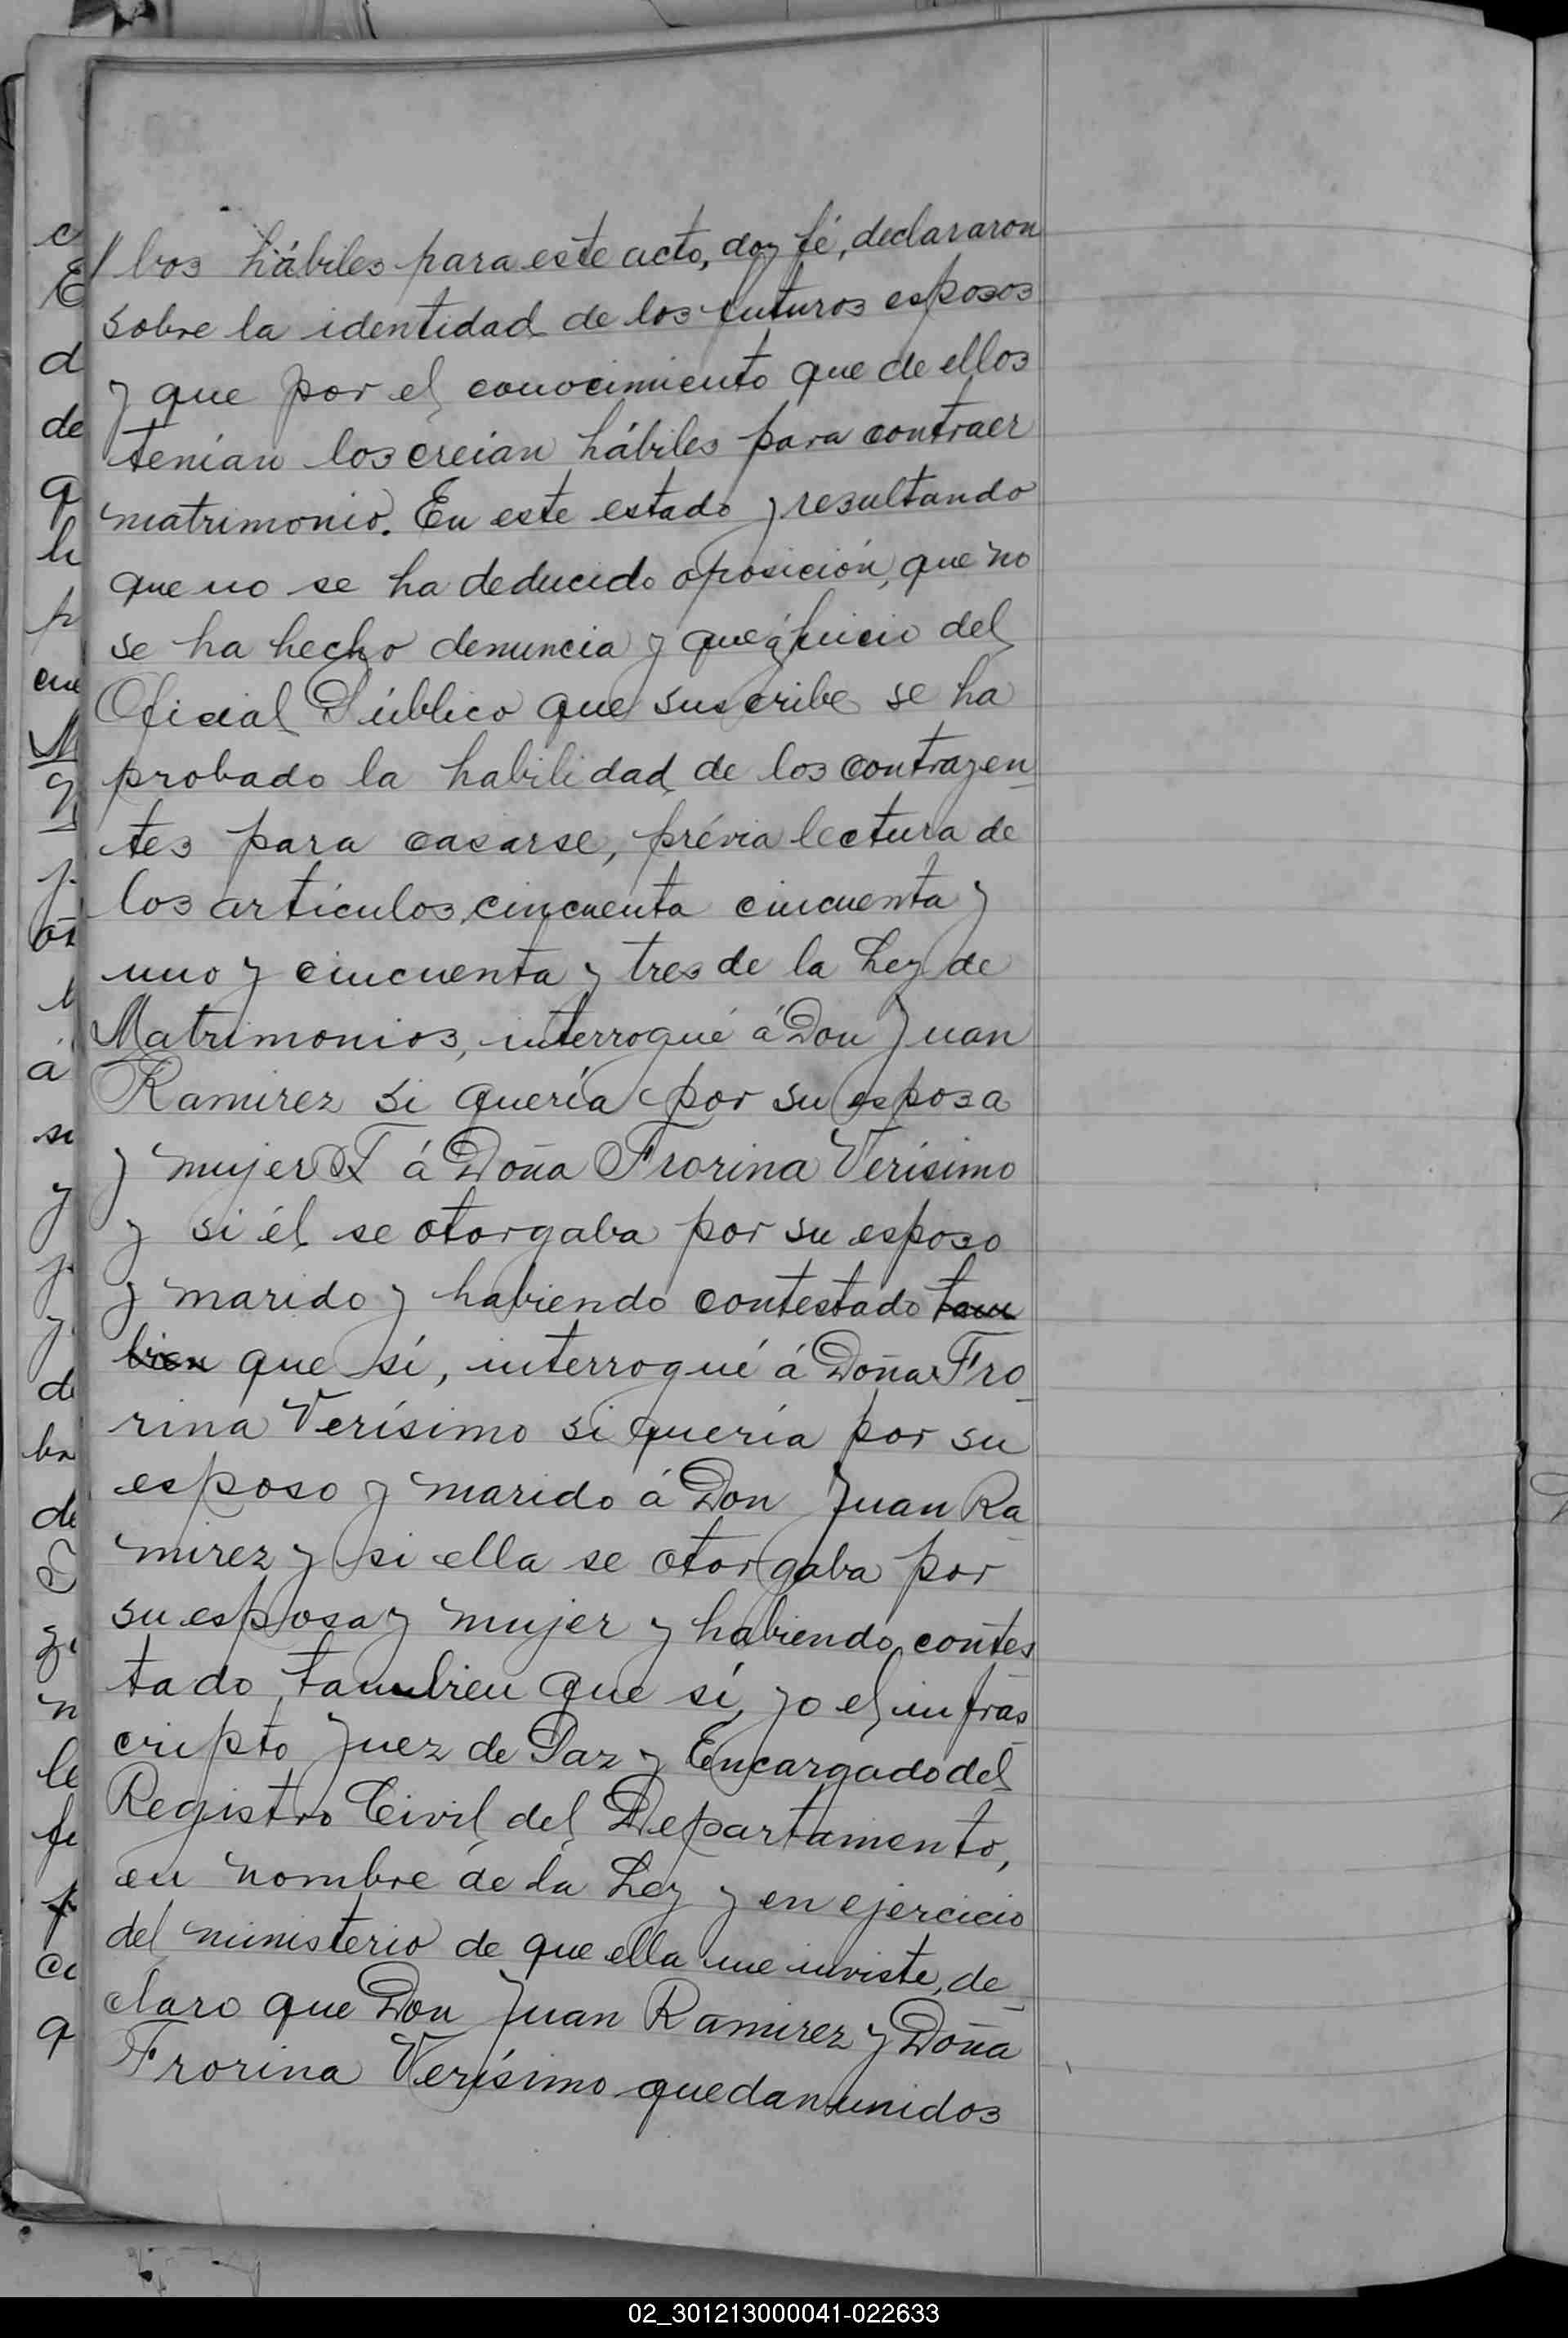 // bos hábiles para este acto, doy fé, declararon
sobre la identidad de los futuros esposos
y que por el conocimiento que de ellos
tenían los creían hábiles para contraer
matrimonio. En este estado y resultando
que no se ha deducido oposición, que no
se ha hecho denuncia y que á juicio del
Oficial Público que suscribe se ha
probado la habilidad de los contrayen-
tes para casarse, prévia lectura de
los artículos cincuenta cincuenta y
uno y cincuenta y tres de la Ley de
Matrimonios, interrogué á Don Juan
Ramirez si quería por su esposa
y mujer á Doña Frorina Verísimo
y si él se otorgaba por su esposo
y marido y habiendo contestado tam
bien que sí, interrogué á Doña Fro-
rina Verísimo si quería por su
esposo y marido á Don Juan Ra-
mirez y si ella se otorgaba por
su esposa y mujer y habiendo contes
tado, tambien que sí, yo el infras-
cripto Juez de Paz y Encargado del
Registro Civil del Departamento,
en nombre de la Ley y en ejercicio
del ministerio de que ella me inviste, de-
claro que Don Juan Ramirez y Doña
Frorina Verísimo quedan unidos
02_301213000041-022633